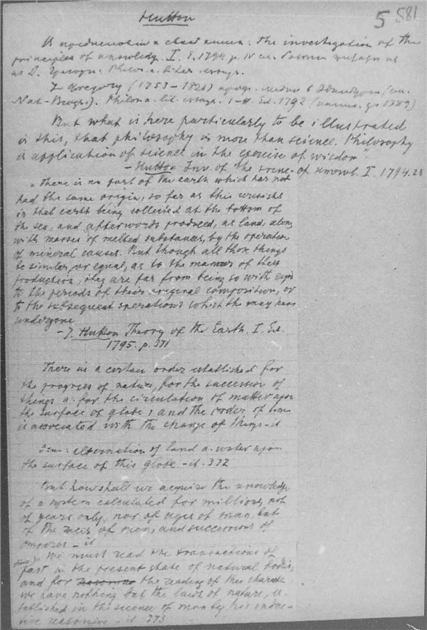 Hutton
5 581
The investigation of the
principles of knowledge. I. E. 1794. p. IV
Gregory (1753 - 1821)
1792
But what is here particularly to be illustrated
is this, that philosophy is more than science. Philosophy
is application of science in the exercise of wisdom.
- Hutton Inv. of the princ. of knowl. I. 1794.
"There is no part of the earth which has not
had the same origin, so far as this consists
in that earth being collected at the bottom of
the sea, and afterwards produced, as land, along
with masses of melted substances, by the operation
of mineral causes. But though all those things
be similar, or equal, as to the manner of their
production, they are far from being so with regard
to the periods of their original composition, or
to the subsequent operations which they may have
undergone
- J. Hutton Theory of the Earth. I. Ed.
1795. p. 371
There is a certain order established for
the progress of nature, for the succession of
things a. for the circulation of matter upon
the surface of globe; and the order of time
is associated with the change of things - id
alternation of land a. water upon
the surface of this globe. - id. 372
But how shall we acquire the knowledge
of a system calculated for millions, not
of years only, nor of ages of man, but
of the races of men, and succession of
empires - id
We must read the transactions of
past in the present state of natural bodies,
and for the reading of this character
we have nothing but the laws of nature, es-
tablished in the science of man by his induc-
tive reasoning - id 373